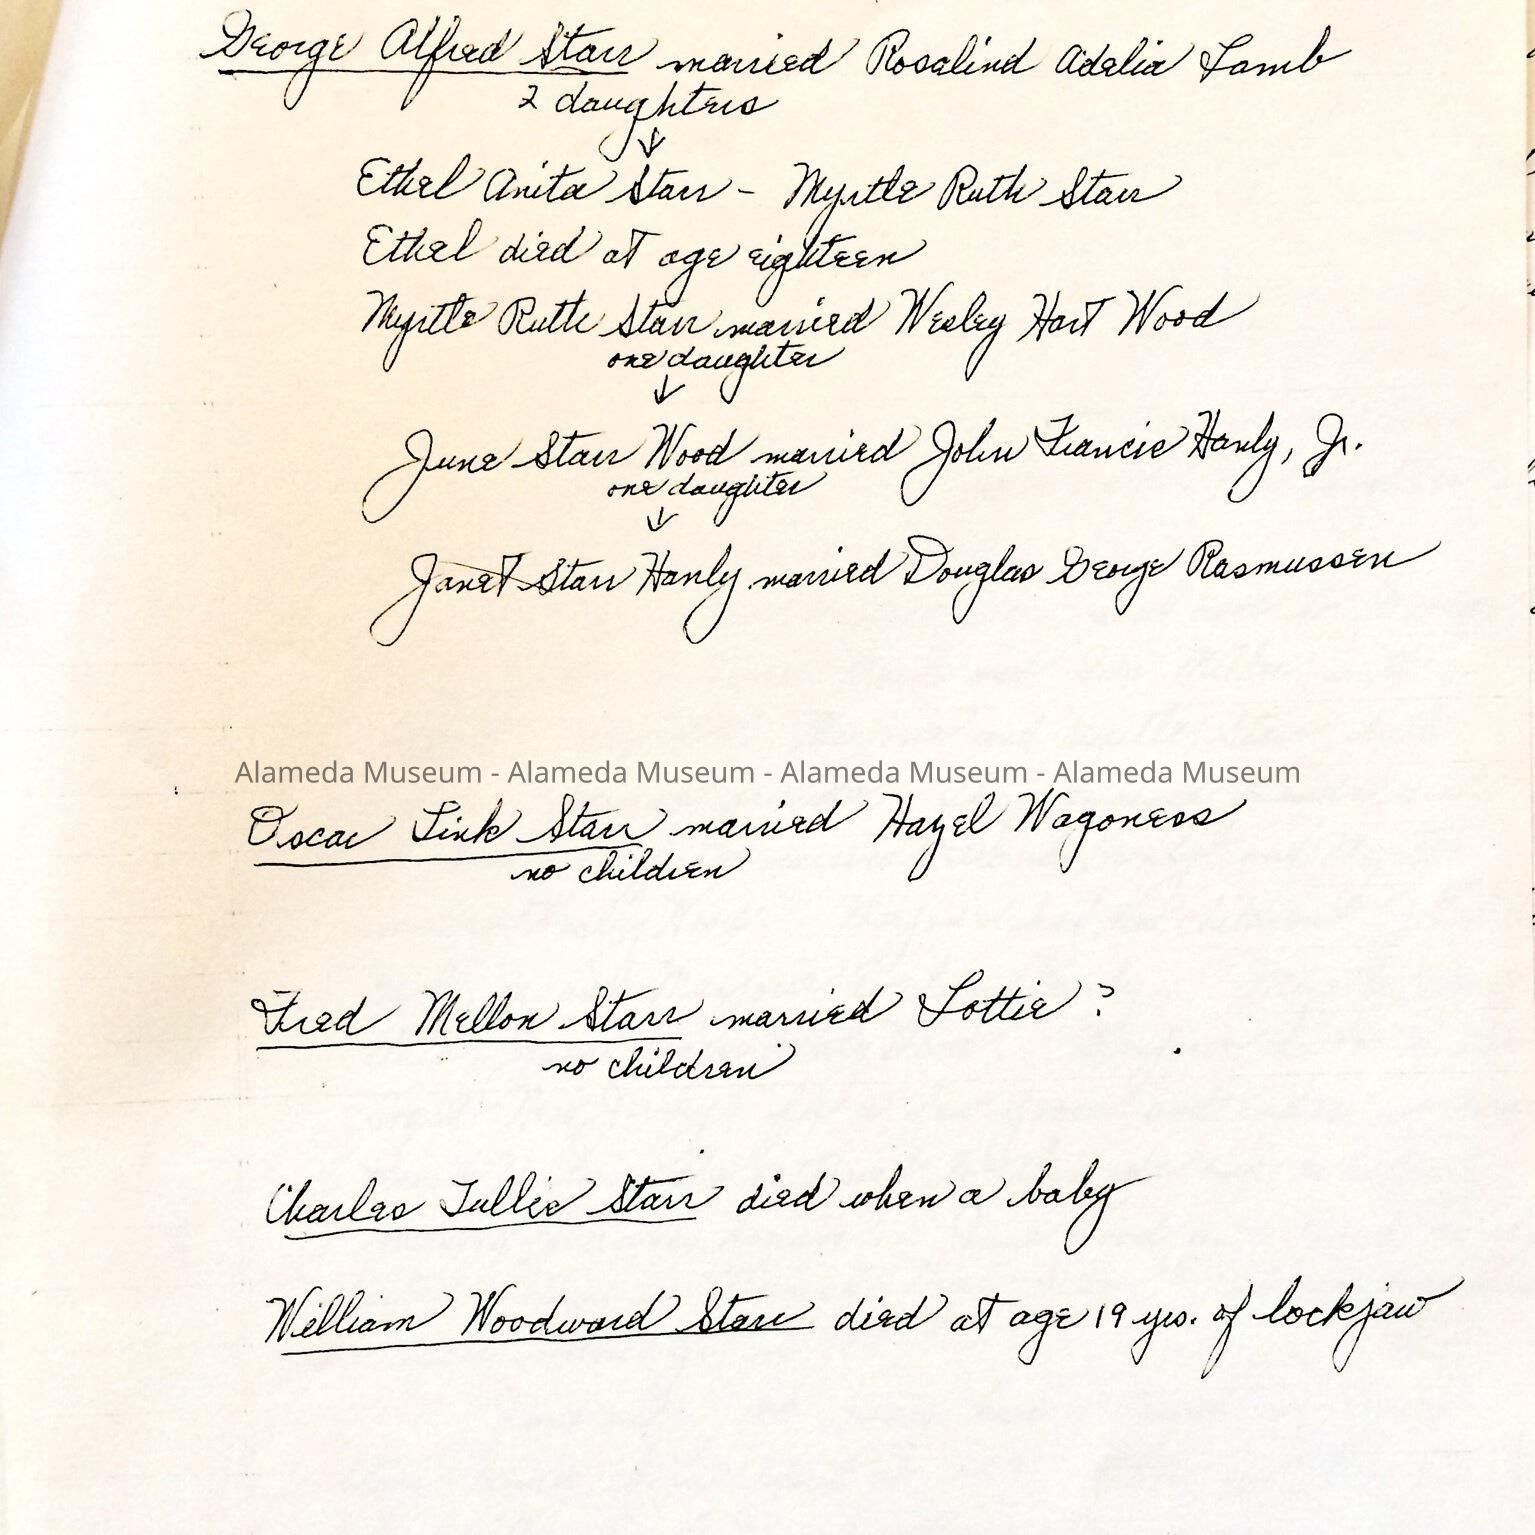 George Alfred Starr married Rosalind Adelia Lamb
2 daughters
Ethel Anita Starr - Myrtle Ruth Starr
Ethel died at age eighteen
Myrtle Ruth Starr married Wesley Hart Wood
one daughter
June Starr Wood married John Francis Hanly, Jr.
one daughter
Janet Starr Hanly married Douglas George Rasmussen
Alameda Museum - Alameda Museum - Alameda Museum - Alameda Museum
Oscar Link Starr married Hazel Wagoness
no children
Fred Mellon Starr married Lottie ?
no children
Charles Tullis Starr died when a baby
William Woodward Starr died at age 19 yrs. of lockjaw